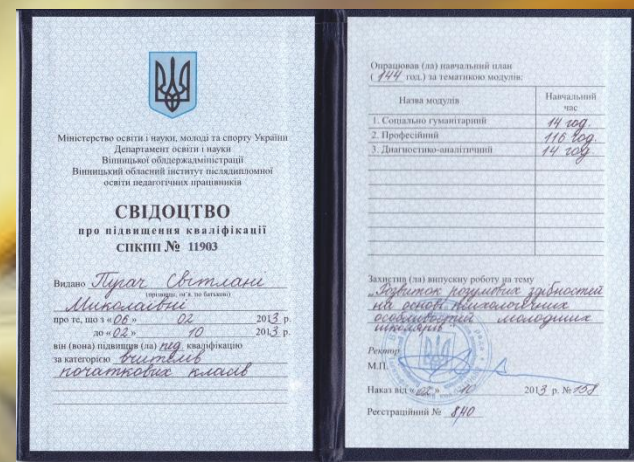 Міністерство освіти і науки, молоді та спорту України
Департамент освіти і науки
Вінницької облдержадміністрації
Вінницький обласний інститут післядипломної
освіти педагогічних працівників
СВІДОЦТВО
про підвищення кваліфікації
СПКПП № 11903
Видано Пугач Світлані
(прізвище, ім'я, по батькові)
Миколаївні
про те, що з «06» 02 2013 р.
до «02» 10 2013 р.
він (вона) підвищив (ла) пед. кваліфікацію
за категорією вчителів
початкових класів
Опрацював (ла) навчальний план
(144 год.) за тематикою модулів:
Назва модулів
Навчальний
час
1. Соціально гуманітарний 14 год.
2. Професійний 116 год.
3. Діагностико-аналітичний 14 год.
Захистив (ла) випускну роботу на тему
„Розвиток розумових здібностей
на основі психологічних
особливостей молодших
школярів"
Ректор
М.П.
Наказ від «02» 10 2013 р. № 158
Реєстраційний № 840